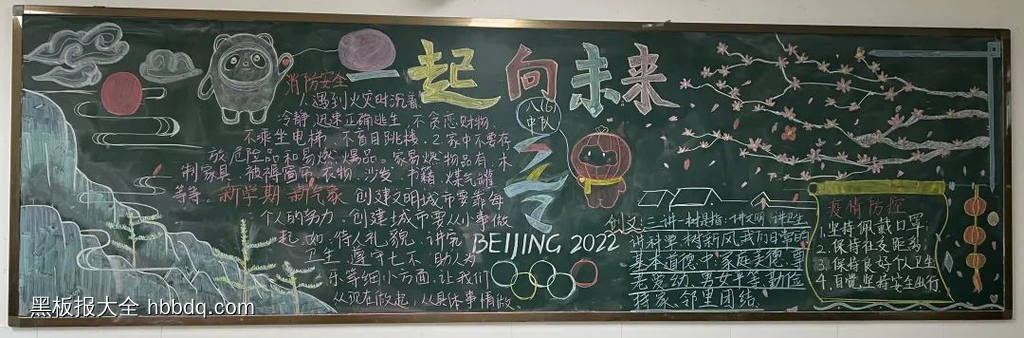 一起向未来
消防安全
1.遇到火灾时沉着
冷静 迅速正确逃生 不贪恋财物
不乘坐电梯，不盲目跳楼。2.家中不要存
放危险品和易燃 爆品。家易燃物品有，木
制家具，被褥窗帘，衣物，沙发，书籍，煤气罐
等等。新学期 新气象 创建文明城市要靠每
个人的努力，创建城市要从小事做
起，如，待人礼貌，讲究
卫生，遵守七不，助人为
乐等细小方面，让我们
从现在做起，从具体事情做
八(6)
中队
BEIJING 2022
创文:三讲一树是指:讲文明 讲卫生
讲科学 树新风 我们日常的
基本道德中 家庭美德 尊
老爱幼，男女平等 勤俭
持家 邻里团结.
疫情防控
1.坚持佩戴口罩
2.保持社交距离
3.保持良好个人卫生
4.自觉坚持安全出行
黑板报大全 hbbdq.com